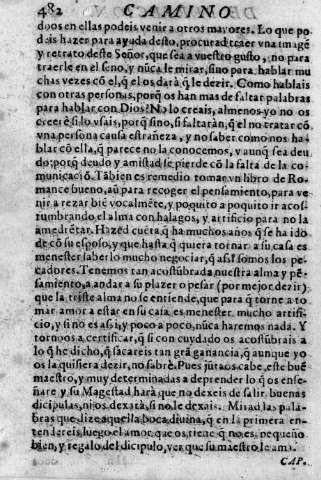 482 CAMINO
dǒos en ellas podeis venir a otros mayores. Lo que po
dais hazer para ayuda desto, procurad traer vna imagẽ
y retrato deste Señor, que sea a vuestro gusto, no para
traerle en el seno, y nũca le mirar, sino para hablar mu
chas vezes cõ el, q̃ el os dara q̃ le dezir. Como hablais
con otras personas, porq̃ os han mas de faltar palabras
para hablar con Dios? No lo creais, almenos yo no os
creerè si lo vsais, porq̃ sino, si faltaràn, q̃ el no tratar cõ
vna persona causa estrañeza, y no saber como nos ha-
blar cõ ella, q̃ parece no la conocemos, y aunq̃ sea deu
do; porq̃ deudo y amistad se pierde cõ la falta de la co-
municaciõ. Tãbien es remedio tomar vn libro de Ro-
mance bueno, aũ para recoger el pensamiento, para ve
nir a rezar biẽ vocalmẽte, y poquito a poquito ir acos-
tumbrando el alma con halagos, y artificio para no la
amedrẽtar. Hazed cuẽta, q̃ ha muchos años q̃ se ha ido
de cõ su esposo, y que hasta q̃ quiera tornar a su casa es
menester saberlo mucho negociar, q̃ assi somos los pe-
cadores. Tenemos tan acostũbrada nuestra alma y pẽ-
samiento, a andar a su plazer o pesar (por mejor dezir)
que la triste alma no se entiende, que para q̃ torne a to-
mar amor a estar en su casa es menester mucho artifi-
cio, y si no es assi, y poco a poco, nũca haremos nada. Y
tornoos a certificar, q̃ si con cuydado os acostũbrais a
lo q̃ he dicho, q̃ sacareis tan grã ganancia, q̃ aunque yo
os la quisiera dezir, no sabrè. Pues jũtaos cabe, este buẽ
maestro, y muy determinadas a deprender lo q̃ os ense-
ñare y su Magestad harà que no dexeis de salir buenas
dicipulas, ni os dexarà, si no le dexais. Mirad las pala-
bras que dize aquella boca diuina, q̃ en la primera en-
tendereis luego el amor que os tiene q̃ no es pequeño
bien, y regalo del dicipulo, ver que su maestro le ama.
CAP.